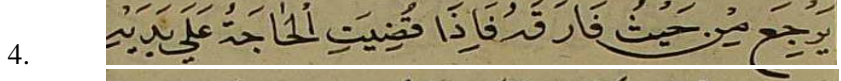 4.
يَرْجِعُ مِنْ حَيْثُ فَارَقَهُ فَاِذَا قُضِيَتِ الْحَاجَةُ عَلَي يَدَيْهِ